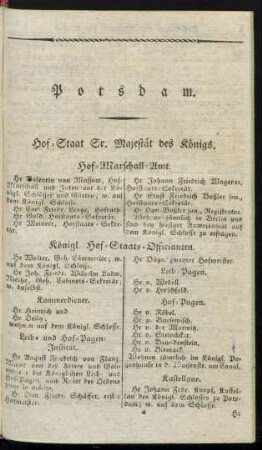 Potsdam.
Hof-Staat Sr. Majestät des Königs.
Hof-Marschall-Amt.
Hr Valentin von Massow, Hof-
Marschall und Intendant der Kö-
nigl. Schlösser und Gärten; w. auf
dem Königl. Schlosse.
Hr Carl Friedr.
Hr Hofstaats-Sekretär.
Hr Meinert, Hofstaats-Sekre-
tär.
Hr Johann Friedrich Wagener,
Hofstaats-Sekretär.
Hr Ernst Friedrich Bußler sen.,
Hofstaats-Sekretär.
Hr Bußler jun., Registrator.
Wohnen sämtlich in Berlin und
sind bey hiesiger Anwesenheit auf
dem Königl. Schlosse zu erfragen.
Königl. Hof-Staats-Officianten.
Hr Wolter, Geh. Kämmerier; w.
auf dem Königl. Schlosse.
Hr Joh. Friedr. Wilhelm Ludw.
Geh. Cabinets-Sekretär;
w. daselbst.
Kammerdiener.
Hr Heinrich und
Hr
wohnen auf dem Königl. Schlosse.
Leib- und Hof-Pagen-
Institut.
Hr August Friedrich von
Major von der Armee und Gouver-
neur der Königlichen Leib- und
Hof-Pagen, auch Ritter des Ordens
pour le mérite.
Hr Dan. Friedr. Schäffer, erster
Hofmeister.
Hr Döge, zweyter Hofmeister.
Leib-Pagen.
Hr v. Wedell.
Hr v. Hirschfeld.
Hof-Pagen.
Hr v. Röbel.
Hr v. Barlewisch.
Hr v. der Marwitz.
Hr v.
Hr v. Brandenstein.
Hr v. Bismark.
Wohnen sämtlich im Königl. Pa-
genhause in d. am Canal.
Kastellane.
Hr Johann Fedr. Kumpf, Kastel-
lan des Königl. Schlosses zu Pots-
dam; w. auf dem Schlosse.
Hr